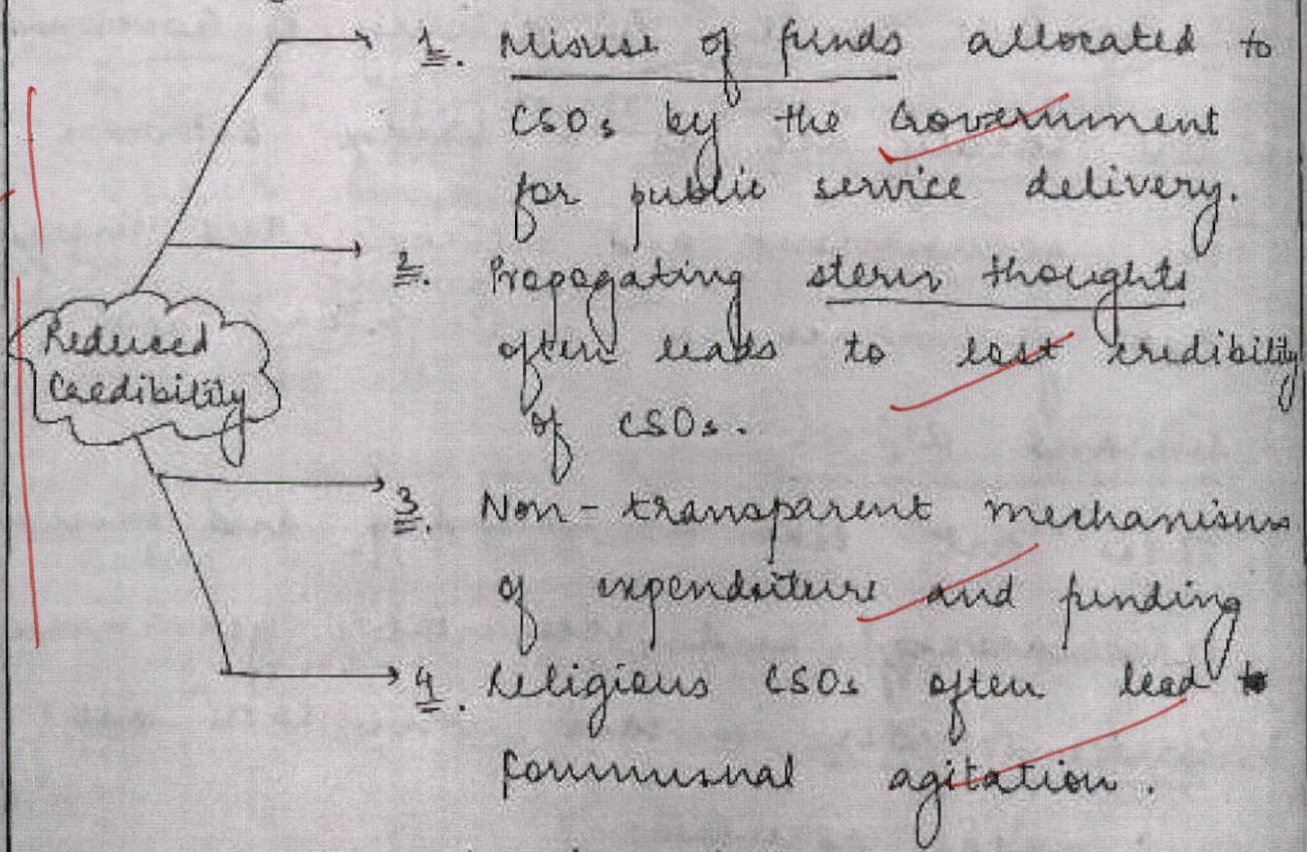 1. Misuse of funds allocated to
CSOs by the Government
for public service delivery.
2. Propagating stern thoughts
often leads to lost credibility
of CSOs.
Reduced
Credibility
3. Non-transparent mechanisms
of expenditure and funding
4. Religious CSOs often lead to
communal agitation.